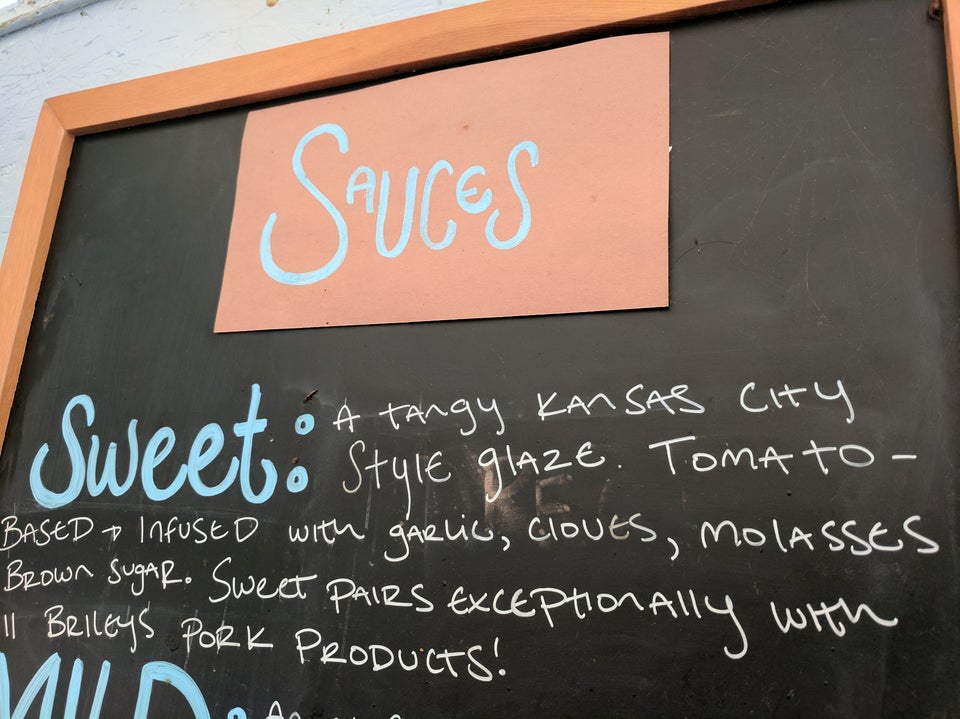 SAUCES
Sweet: A TANGY KANSAS CITY
STYLE GLAZE. TOMATO-
BASED + INFUSED WITH GARLIC, CLOVES, MOLASSES
BROWN SUGAR. SWEET PAIRS EXCEPTIONALLY WITH
ll BRILEYS PORK PRODUCTS!
MILD: